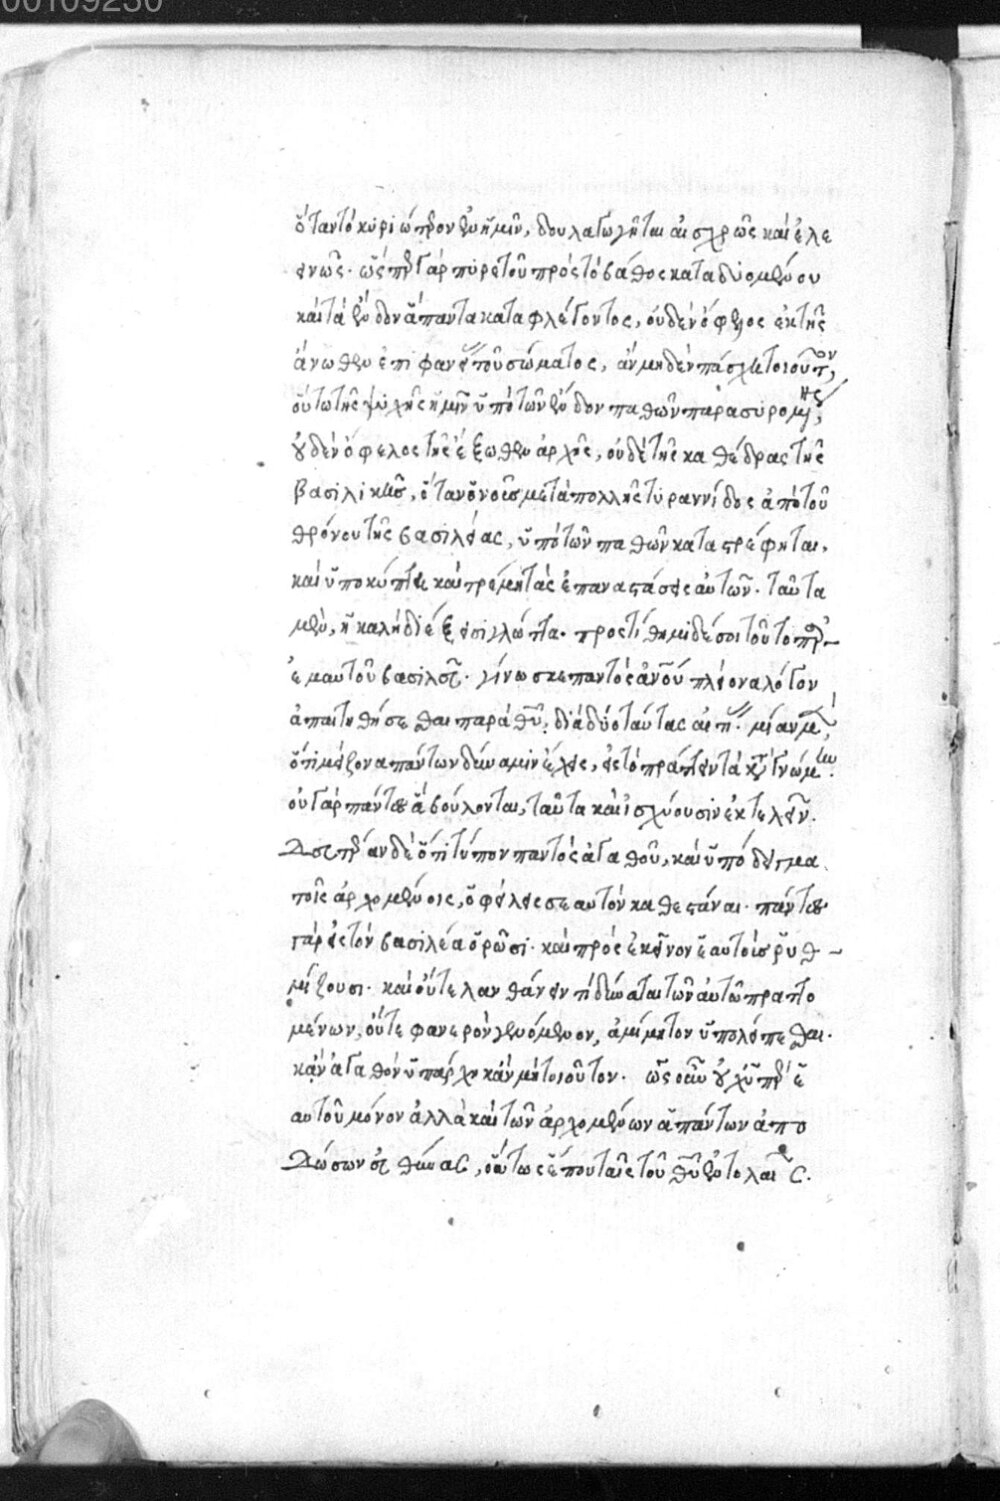 00109230
ὅταν τὸ κυριώτερον ἐν ἡμῖν, δουλαγωγῆται αἰσχρῶς καὶ ἐλε
εινῶς. ὥσπερ γὰρ πυρετοῦ πρὸς τὸ βάθος καταδυομένου
καὶ τὰ ἔνδον ἅπαντα καταφλέγοντος, οὐδὲν ὄφελος ἐκ τῆς
ἄνωθεν ἐπιφανείας τοῦ σώματος, ἂν μηδὲν πάσχει τοιοῦτον,
οὕτω τῆς ψυχῆς ἡμῖν ὑπὸ τῶν ἔνδον παθῶν παρασυρομένης,
οὐδὲν ὄφελος τῆς ἔξωθεν ἀρχῆς, οὐδὲ τῆς καθέδρας τῆς
βασιλικῆς, ὅταν ὁ νοῦς μετὰ πολλῆς τυραννίδος ἀπὸ τοῦ
θρόνου τῆς βασιλείας, ὑπὸ τῶν παθῶν καταστρέφηται,
καὶ ὑποκύπτει καὶ τρέμῃ τὰς ἐπαναστάσεις αὐτῶν. ταῦτα
μὲν, ἡ καλὴ διέξεισι γλῶττα. προστίθημι δέ σοι τοῦτο παρ᾽
ἐμαυτοῦ βασιλεῦ. γίνωσκε παντὸς ἀνθρώπου πλείονα λόγον
ἀπαιτηθήσεσθαι παρὰ θεοῦ, διὰ δύο ταύτας αἰτίας. μίαν μὲν,
ὅτι μείζονα πάντων δύναμιν ἔχεις, εἰς τὸ πράττειν τὰ κατὰ γνώμην.
οὐ γὰρ πάντες ἃ βούλονται, ταῦτα καὶ ἰσχύουσιν ἐκτελεῖν.
Δευτέραν δὲ ὅτι τύπον παντὸς ἀγαθοῦ, καὶ ὑπόδειγμα
τοῖς ἀρχομένοις, ὀφείλεις σεαυτὸν καθεστάναι. πάντες
γὰρ εἰς τὸν βασιλέα ὁρῶσι. καὶ πρὸς ἐκεῖνον ἑαυτοὺς ῥυθ
μίζουσι. καὶ οὔτε λανθάνειν τι δύναται τῶν αὐτῷ πραττο
μένων, οὔτε φανερὸν γενόμενον, ἀμίμητον ὑπολείπεσθαι.
κἂν ἀγαθὸν ὑπάρχῃ κἂν μὴ τοιοῦτον. ὡς οὖν οὐχ ὑπὲρ ἑ
αυτοῦ μόνον ἀλλὰ καὶ τῶν ἀρχομένων ἁπάντων ἀπο
Δώσων εὐθύνας, οὕτως ἕπου ταῖς τοῦ θεοῦ ἐντολαῖς.